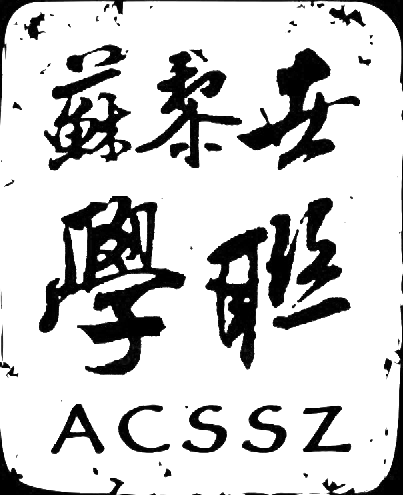 蘇黎世
學聯
ACSSZ